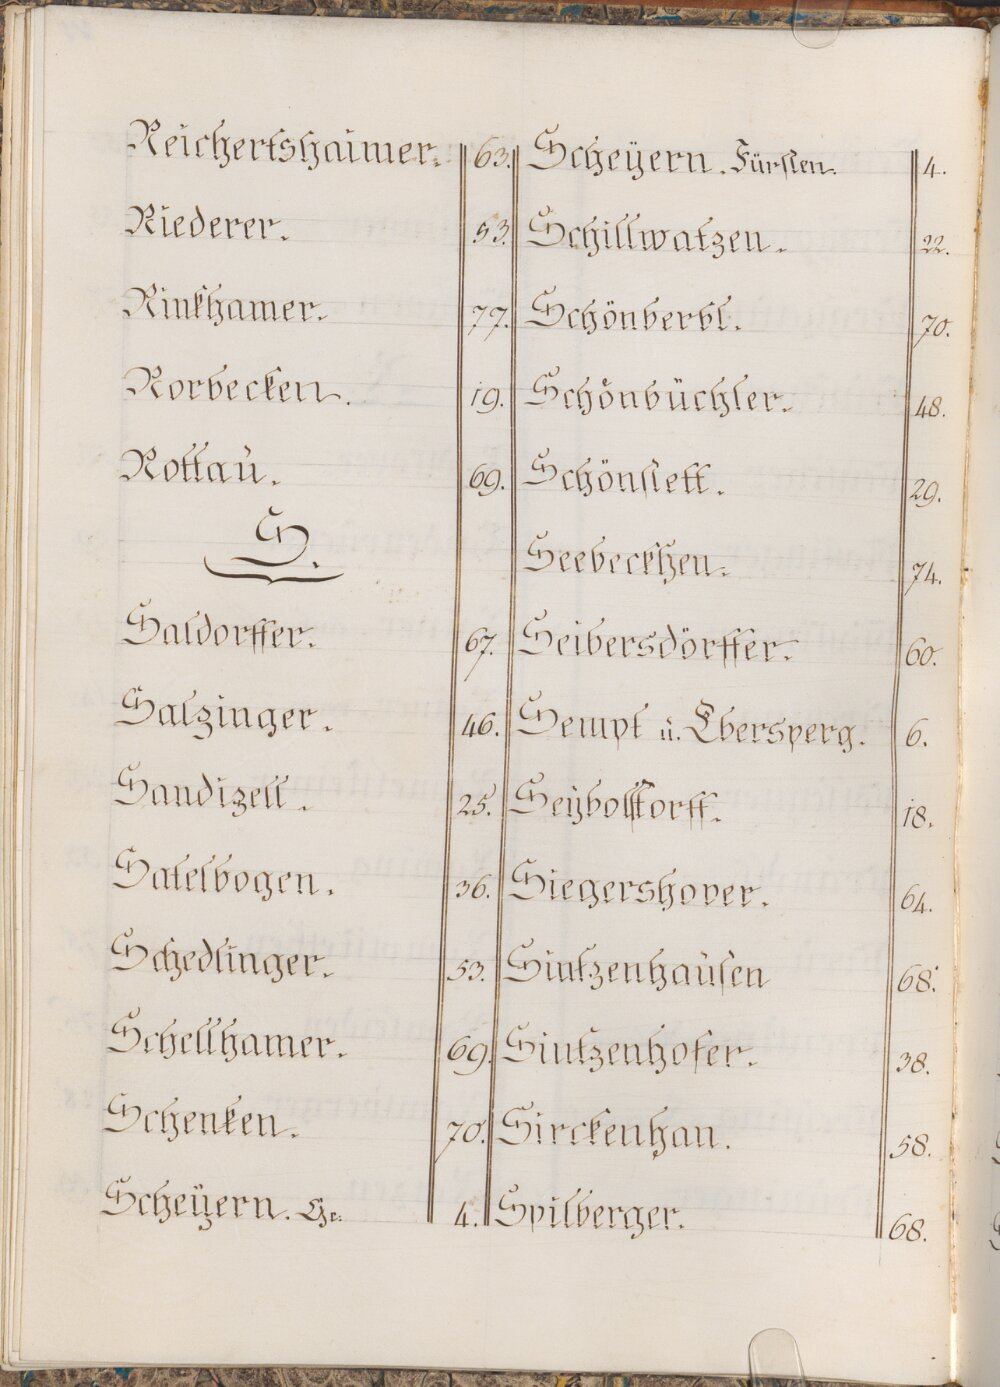 Reichertshaimer. 63.
Riederer. 53.
Rinkhamer. 77.
Rorbecken. 19.
Rottaŭ. 69.
S.
Saldorffer. 67.
Salzinger. 46.
Sandizell. 25.
Satelbogen. 36.
Schedlinger. 53.
Schellhamer. 69.
Schenken. 70.
Scheÿern. Gr: 4.
Scheÿern. Fürsten. 4.
Schillwatzen. 22.
Schönberbl. 70.
Schönbüchler. 48.
Schönstett. 29.
Seebeckhen. 74.
Seibersdörffer. 60.
Sempt ŭ. Ebersperg. 6.
Seÿbolstorff. 18.
Siegershover. 64.
Sintzenhaŭsen 68.
Sintzenhofer. 38.
Sirckenhan. 58.
Spilberger. 68.